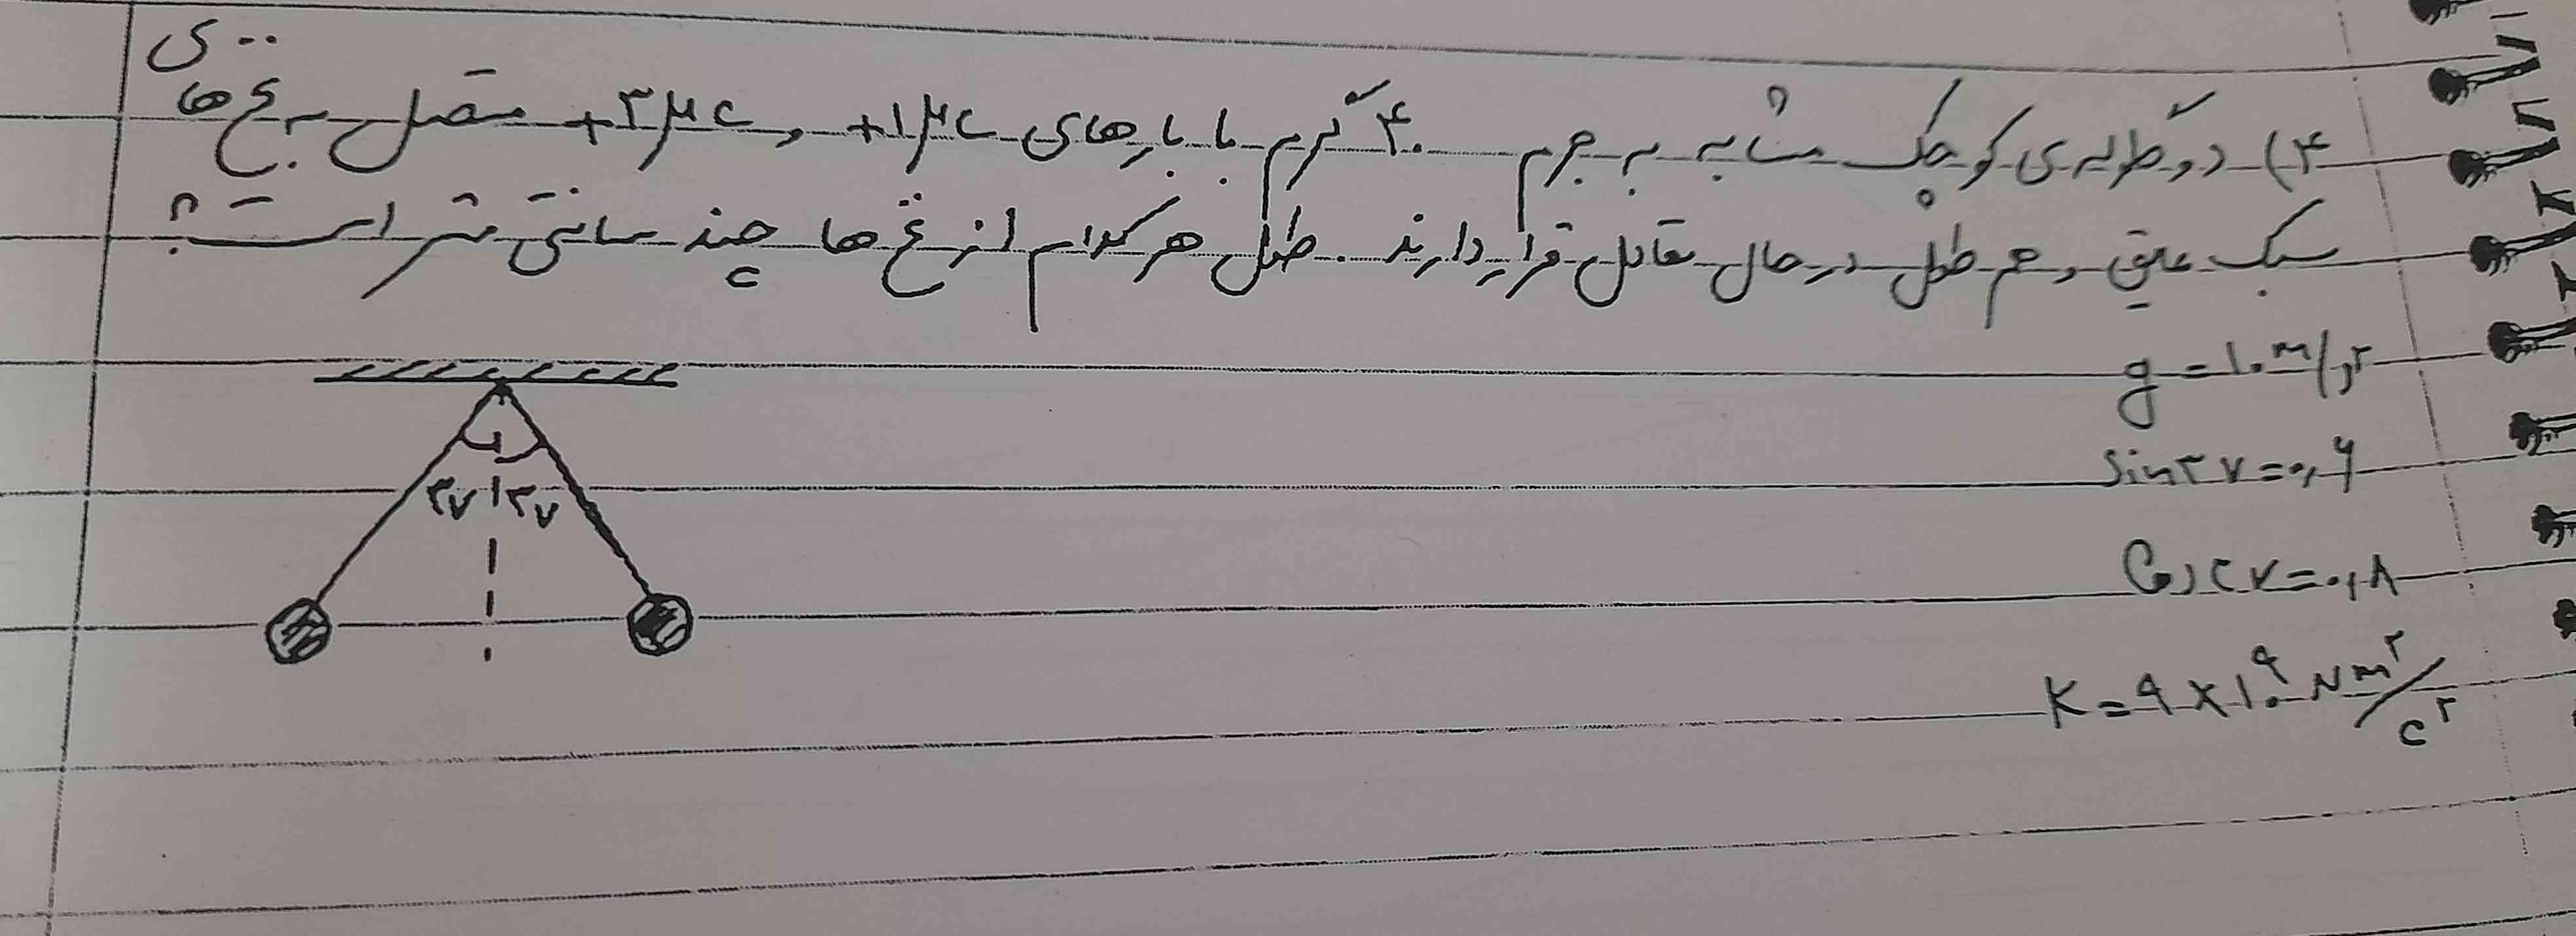 ی
۴) دو گلوله‌ی کوچک مشابه به جرم ۴۰ گرم با بارهای +۱μC و +۳μC متصل به نخ‌ها
سبک عایق و هم طول در حال تعادل قرار دارند. طول هر کدام از نخ‌ها چند سانتی متر است؟
g = ۱۰ m/s۲
sin۳۷=۰,۶
Cos۳۷=۰,۸
۳۷ ۳۷
K = ۹ × ۱۰۹ Nm۲/c۲